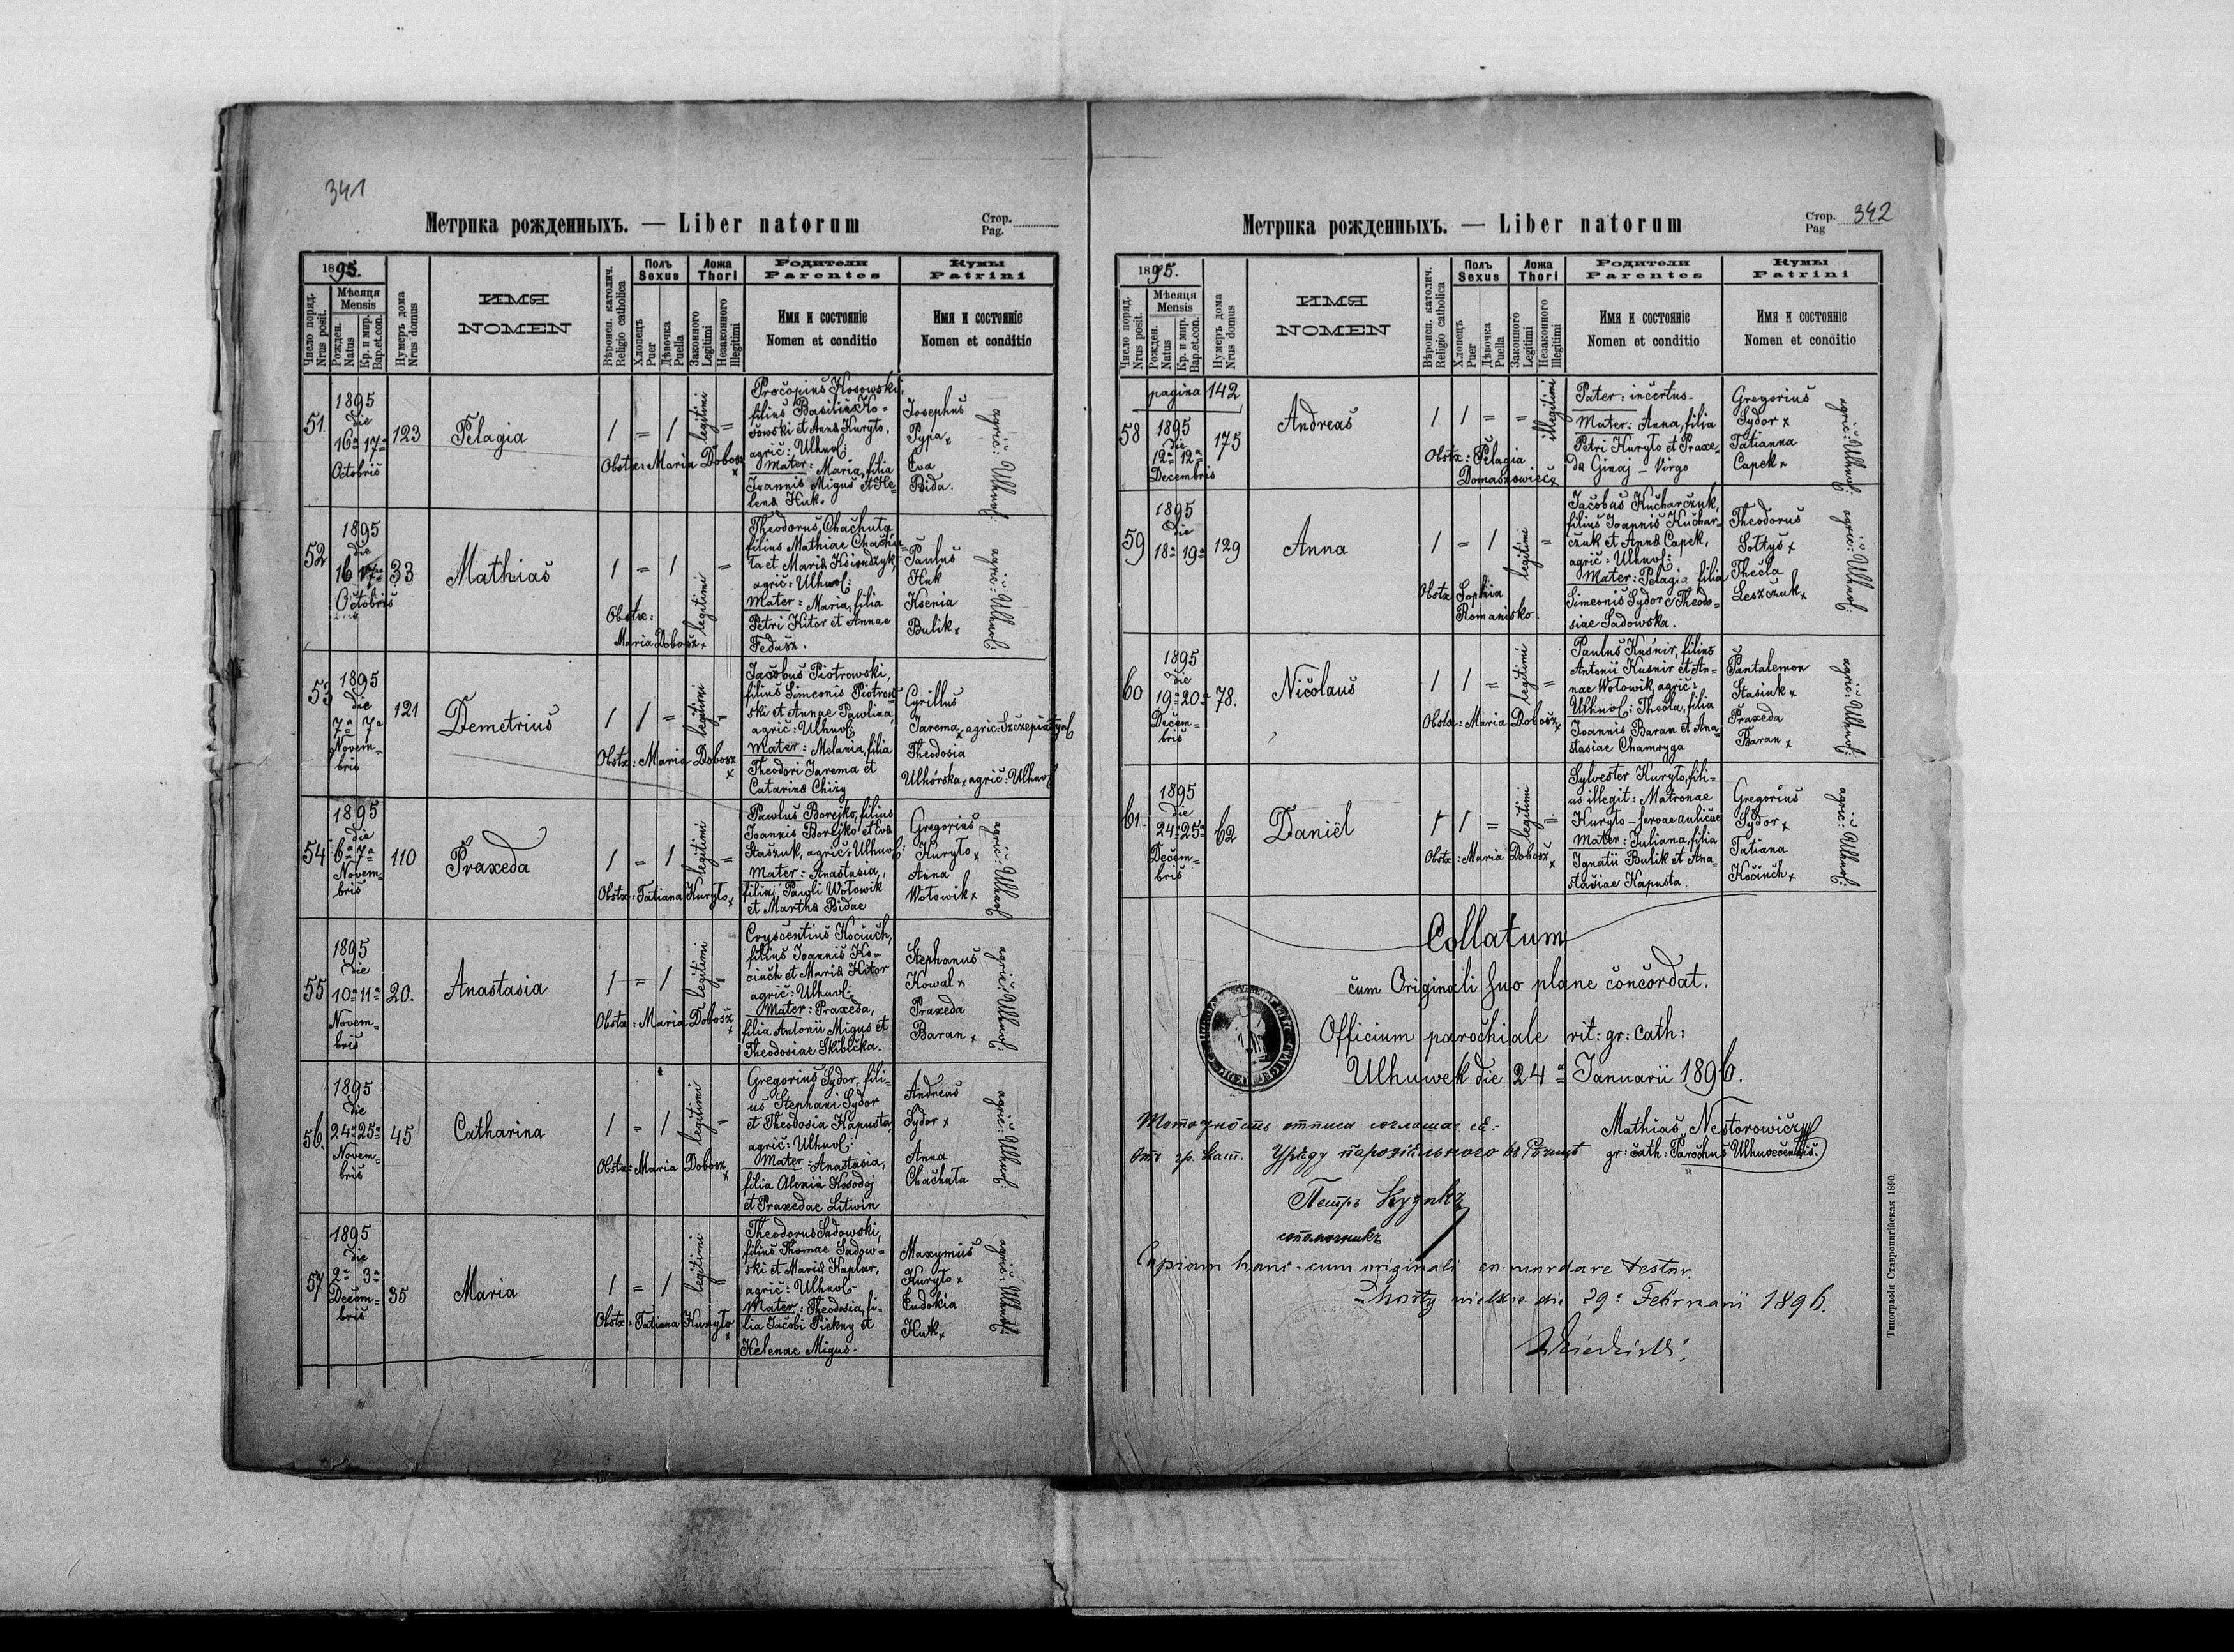 341
Метрика рожденныхъ. — Liber natorum
Стор.
Pag.
1895.
Число поряд.
Nrus posit.
Мѣсяця
Mensis
Рожден.
Natus
Кр. и мир.
Bap.et.con.
Нумеръ дома
Nrus domus
ИМЯ
NOMEN
Вѣроисп. католич.
Religio catholica
Полъ
Sexus
Хлопецъ
Puer
Дѣвочка
Puella
Ложа
Thori
Законного
Legitimi
Незаконного
Illegitimi
Родители
Parentes
Имя и состояніе
Nomen et conditio
Кумы
Patrini
Имя и состояніе
Nomen et conditio
51.
1895
die
16a 17a
Octobris
123
Pelagia
1 = 1 legitimi =
Obstx: Maria Dobosz x
Procopius Kosowski,
filius Basilii Ko-
sowski et Anna Kuryło,
agric: Ulhuv:
Mater: Maria, filia
Joannis Migus et He-
lena Huk.
Josephus
Pypa x
Eva
Bida.
agric: Ulhuv:
52
1895
die
16 17a
Octobris
33
Mathias
1 = 1 legitimi =
Obstx:
Maria Dobosz x
Theodorus Chachuta
filius Mathiae Chachu-
ta et Maria Ksiondzyk,
agric: Ulhuv:
Mater: Maria, filia
Petri Hitor et Annae
Fedasz.
Paulus
Huk
Ksenia
Bulik x
agric: Ulhuv:
53
1895
die
7a 7a
Novem-
bris
121
Demetrius
1 1 = legitimi =
Obstx: Maria Dobosz x
Jacobus Piotrowski,
filius Simeonis Piotrow-
ski et Annae Pawlina,
agric: Ulhuv:
Mater: Melania, filia
Theodori Jarema et
Catarina Chizy
Cyrillus
Jarema x agric: Szczepiatyn
Theodosia
Ulhórska x agric: Ulhuv:
54
1895
die
6a 7a
Novem-
bris
110
Praxeda
1 = 1 legitimi =
Obstx: Tatiana Kuryło x
Pawlus Borejko, filius
Joannis Borejko et Eva
Staszuk, agric: Ulhuv:
Mater: Anastasia,
filia Pawli Wołowik
et Martha Bidae
Gregorius
Kuryło x
Anna
Wołowik x
agric: Ulhuv:
55
1895
die
10a 11a
Novem-
bris
20.
Anastasia
1 = 1 legitimi =
Obstx: Maria Dobosz x
Cryscentius Kociuch,
filius Joannis Ko-
ciuch et Maria Hitor
agric: Ulhuv:
Mater: Praxeda,
filia Antonii Migus et
Theodosiae Skibicka.
Stephanus
Kowal x
Praxeda
Baran x
agric: Ulhuv:
56.
1895
die
24a 25a
Novem-
bris
45
Catharina
1 = 1 legitimi =
Obstx: Maria Dobosz x
Gregorius Sydor, fili-
us Stephani Sydor
et Theodosia Kapusta,
agric: Ulhuv:
Mater: Anastasia,
filia Alexii Kosodoj
et Praxedae Litwin
Andreas
Sydor x
Anna
Chachuta
agric: Ulhuv:
57
1895
die
2a 3a
Decem-
bris
35
Maria
1 = 1 legitimi =
Obstx: Tatiana Kuryło x
Theodorus Sadowski,
filius Thomae Sadow-
ski et Maria Kaplar,
agric: Ulhuv:
Mater: Theodosia, fi-
lia Jacobi Piekny et
Helenae Migus.
Maxymius
Kuryło x
Eudokia
Huk x
agric: Ulhuv:
Метрика рожденныхъ. — Liber natorum
Стор.
Pag 342
1895.
Число поряд.
Nrus posit.
Мѣсяця
Mensis
Рожден.
Natus
Кр. и мир.
Bap.et.con.
Нумеръ дома
Nrus domus
ИМЯ
NOMEN
Вѣроисп. католич.
Religio catholica
Полъ
Sexus
Хлопецъ
Puer
Дѣвочка
Puella
Ложа
Thori
Законного
Legitimi
Незаконного
Illegitimi
Родители
Parentes
Имя и состояніе
Nomen et conditio
Кумы
Patrini
Имя и состояніе
Nomen et conditio
pagina 142
58
1895
die
12a 12a
Decembris
175
Andreas
1 1 = = illegitimi
Obstx: Pelagia
Domaszowiecz x
Pater: incertus.
Mater: Anna, filia
Petri Kuryło et Praxe-
da Ginaj – Virgo
Gregorius
Sydor x
Tatianna
Capek x
agric: Ulhuv:
59
1895
die
18a 19a
129
Anna
1 = 1 legitimi =
Obstx Sophia
Romanisko.
Jacobus Kucharczuk,
filius Joannis Kuchar-
czuk et Anna Capek,
agric: Ulhuv:
Mater: Pelagia filia
Simeonis Sydor et Theodo-
siae Sadowska.
Theodorus
Sołtys x
Thecla
Leszczuk x
agric: Ulhuv:
60
1895
die
19a 20a
Decem-
bris
78.
Nicolaus
1 1 = legitimi =
Obstx: Maria Dobosz x
Paulus Kusnir, filius
Antonii Kusnir et An-
nae Wołowik, agric:
Ulhuv: Thecla, filia
Joannis Baran et Ana-
stasiae Chamryga
Pantalemon
Stasiuk x
Praxeda
Baran x
agric: Ulhuv:
61.
1895
die
24a 25a
Decem-
bris
62
Daniël
1 1 = legitimi =
Obstx: Maria Dobosz x
Sylvester Kuryło, fili-
us illegit: Matronae
Kuryło – servae aulicae
Mater: Juliana, filia
Ignatii Bulik et Ana-
stasiae Kapusta.
Gregorius
Sydor x
Tatiana
Kociuch x
agric: Ulhuv:
Collatum
cum Originali suo plane concordat.
Officium parochiale rit: gr: cath:
Ulhuwek die 24a Januarii 1896.
Mathias Nestorowicz
gr: cath: Parochus Ulhuvecensis.
отъ гр. кат. Уряду парохіяльного въ
Петръ
сотрудникъ
Copiam hanc cum originali concordare testor.
Mosty wielkie die 29a Februarii 1896.
Типографія Ставропигійская 1890.